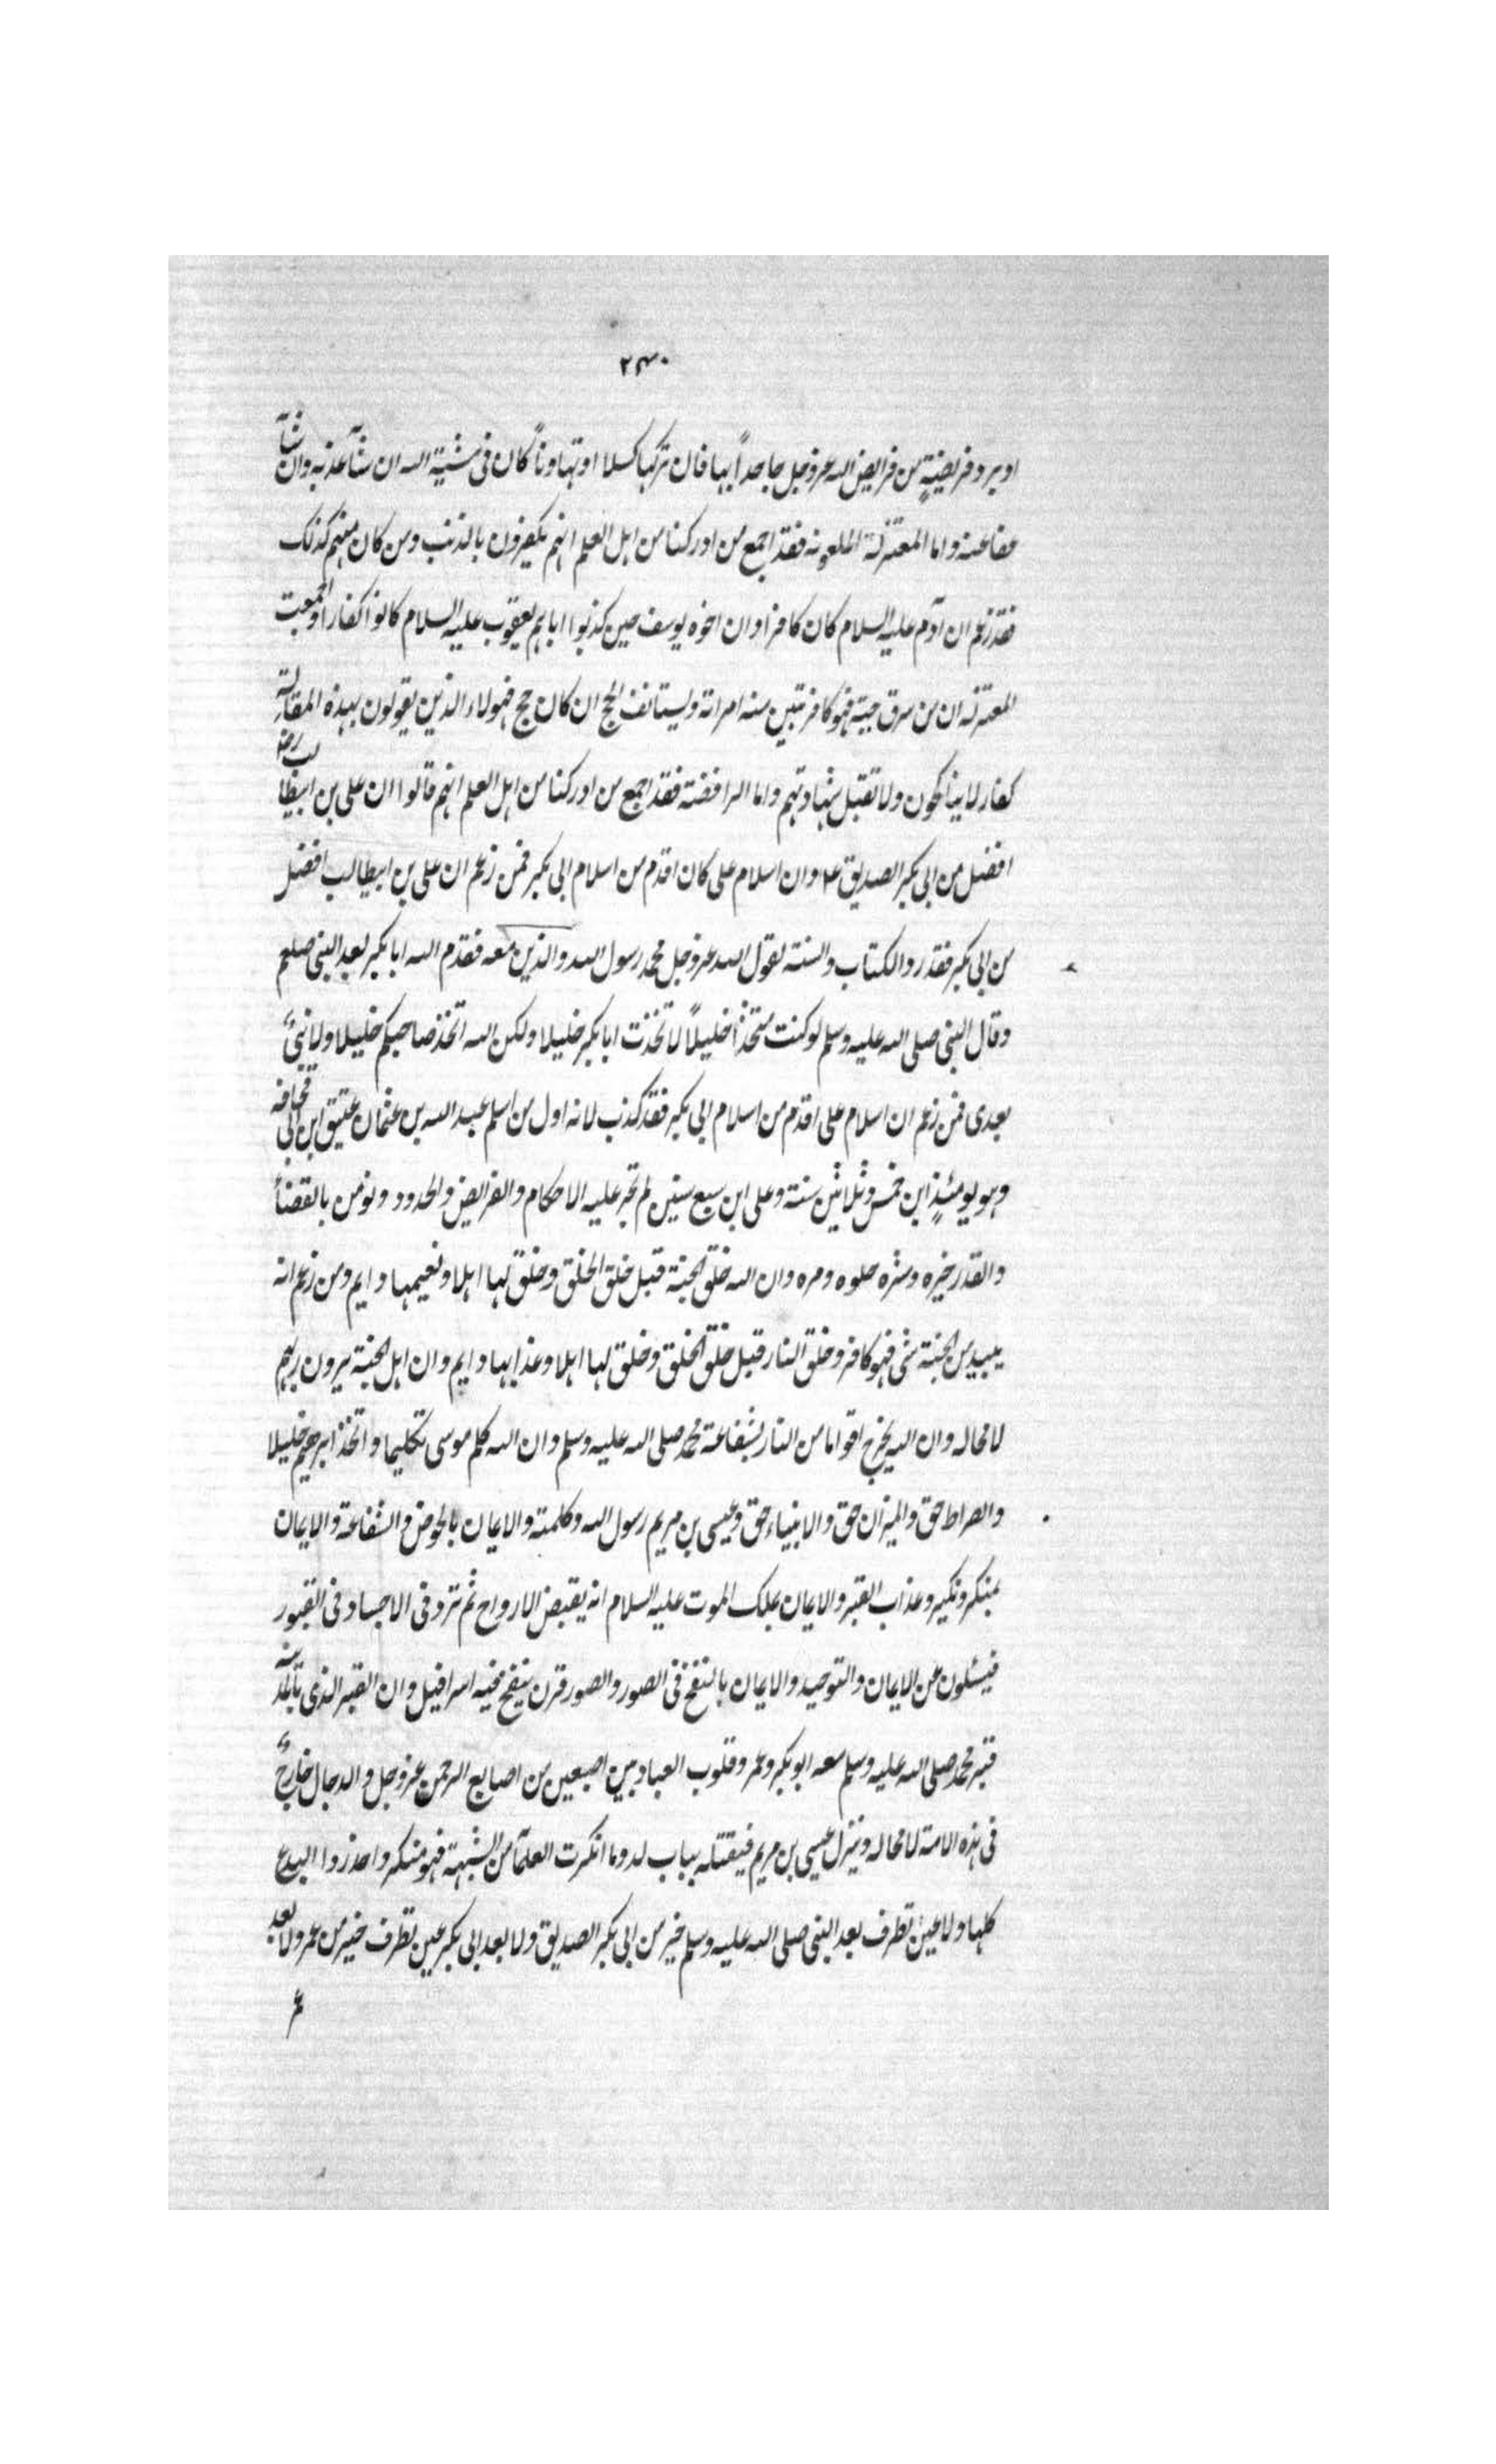 ۲۳۰
او برد فريضةٍ من فرايض الله عز وجل جاحداً بها فان تركها كسلا او تهاوناً كان فى مشية الله ان شآء عذبه وان شآء
عفا عنه واما المعتزلة الملعونه فقد اجمع من ادركنا من اهل العلم انهم يكفرون بالذنب ومن كان منهم كذلك
فقد زعم ان آدم عليه السلام كان كافرا وان اخوه يوسف حين كذبوا اباهم يعقوب عليه السلام كانوا كفارا واجمعت
المعتزله ان من سرق حبة فهو كافر تبين منه امراته ويستانف الحج ان كان حج فهولاء الذين يقولون بهذه المقالة
كفار لا يناكحون ولا تقبل شهادتهم واما الرافضة فقد اجمع من ادركنا من اهل العلم انهم قالوا ان على بن ابيطالب رضه
افضل من ابى بكر الصديق وان اسلام على كان اقدم من اسلام ابى بكر فمن زعم ان على بن ابيطالب افضل
من ابى بكر فقد رد الكتاب والسنة لقول الله عز وجل محمد رسول الله والذين معه فقدم الله ابا بكر بعد النبى صلعم
وقال النبى صلى الله عليه وسلم لو كنت متخذاً خليلاً لاتخذت ابا بكر خليلا ولكن الله اتخذ صاحبكم خليلا ولا نبىَّ
بعدى فمن زعم ان اسلام على اقدم من اسلام ابى بكر فقد كذب لانه اول من اسلم عبد الله بن عثمان عتيق ابن ابى قحافه
وهو يومئذٍ ابن خمس وثلاثين سنة وعلى ابن سبع سنين لم تجر عليه الاحكام والفرايض والحدود ونومن بالقضاء
والقدر خيره وشره حلوه ومره وان الله خلق الجنة قبل خلق الخلق وخلق لها اهلا ونعيمها دايم ومن زعم انه
يبيد من الجنة شى فهو كافر وخلق النار قبل خلق الخلق وخلق لها اهلا وعذابها دايم وان اهل الجنة يرون ربهم
لا محاله وان الله يخرج اقواما من النار بشفاعة محمد صلى الله عليه وسلم وان الله كلم موسى تكليما واتخذ ابرهيم خليلا
والصراط حق والميزان حق والانبياء حق وعيسى بن مريم رسول الله وكلمته والايمان بالحوض والشفاعة والايمان
بمنكر ونكير وعذاب القبر والايمان بملك الموت عليه السلام انه يقبض الارواح ثم ترد فى الاجساد فى القبور
فيسئلون عن الايمان والتوحيد والايمان بالنفخ فى الصور والصور قرن ينفخ فيه اسرافيل وان القبر الذى بالمدينة
قبر محمد صلى الله عليه وسلم معه ابو بكر وعمر وقلوب العباد بين اصبعين من اصابع الرحمن عز وجل والدجال خارجٌ
فى هذه الامة لا محاله وينزل عيسى بن مريم فيقتله بباب لد وما انكرت العلمآء من الشبهة فهو منكر واحذروا البدع
كلها ولا عين تطرف بعد النبى صلى الله عليه وسلم خير من ابى بكر الصديق ولا بعد ابى بكر عين تطرف خير من عمر ولا بعد
عمر